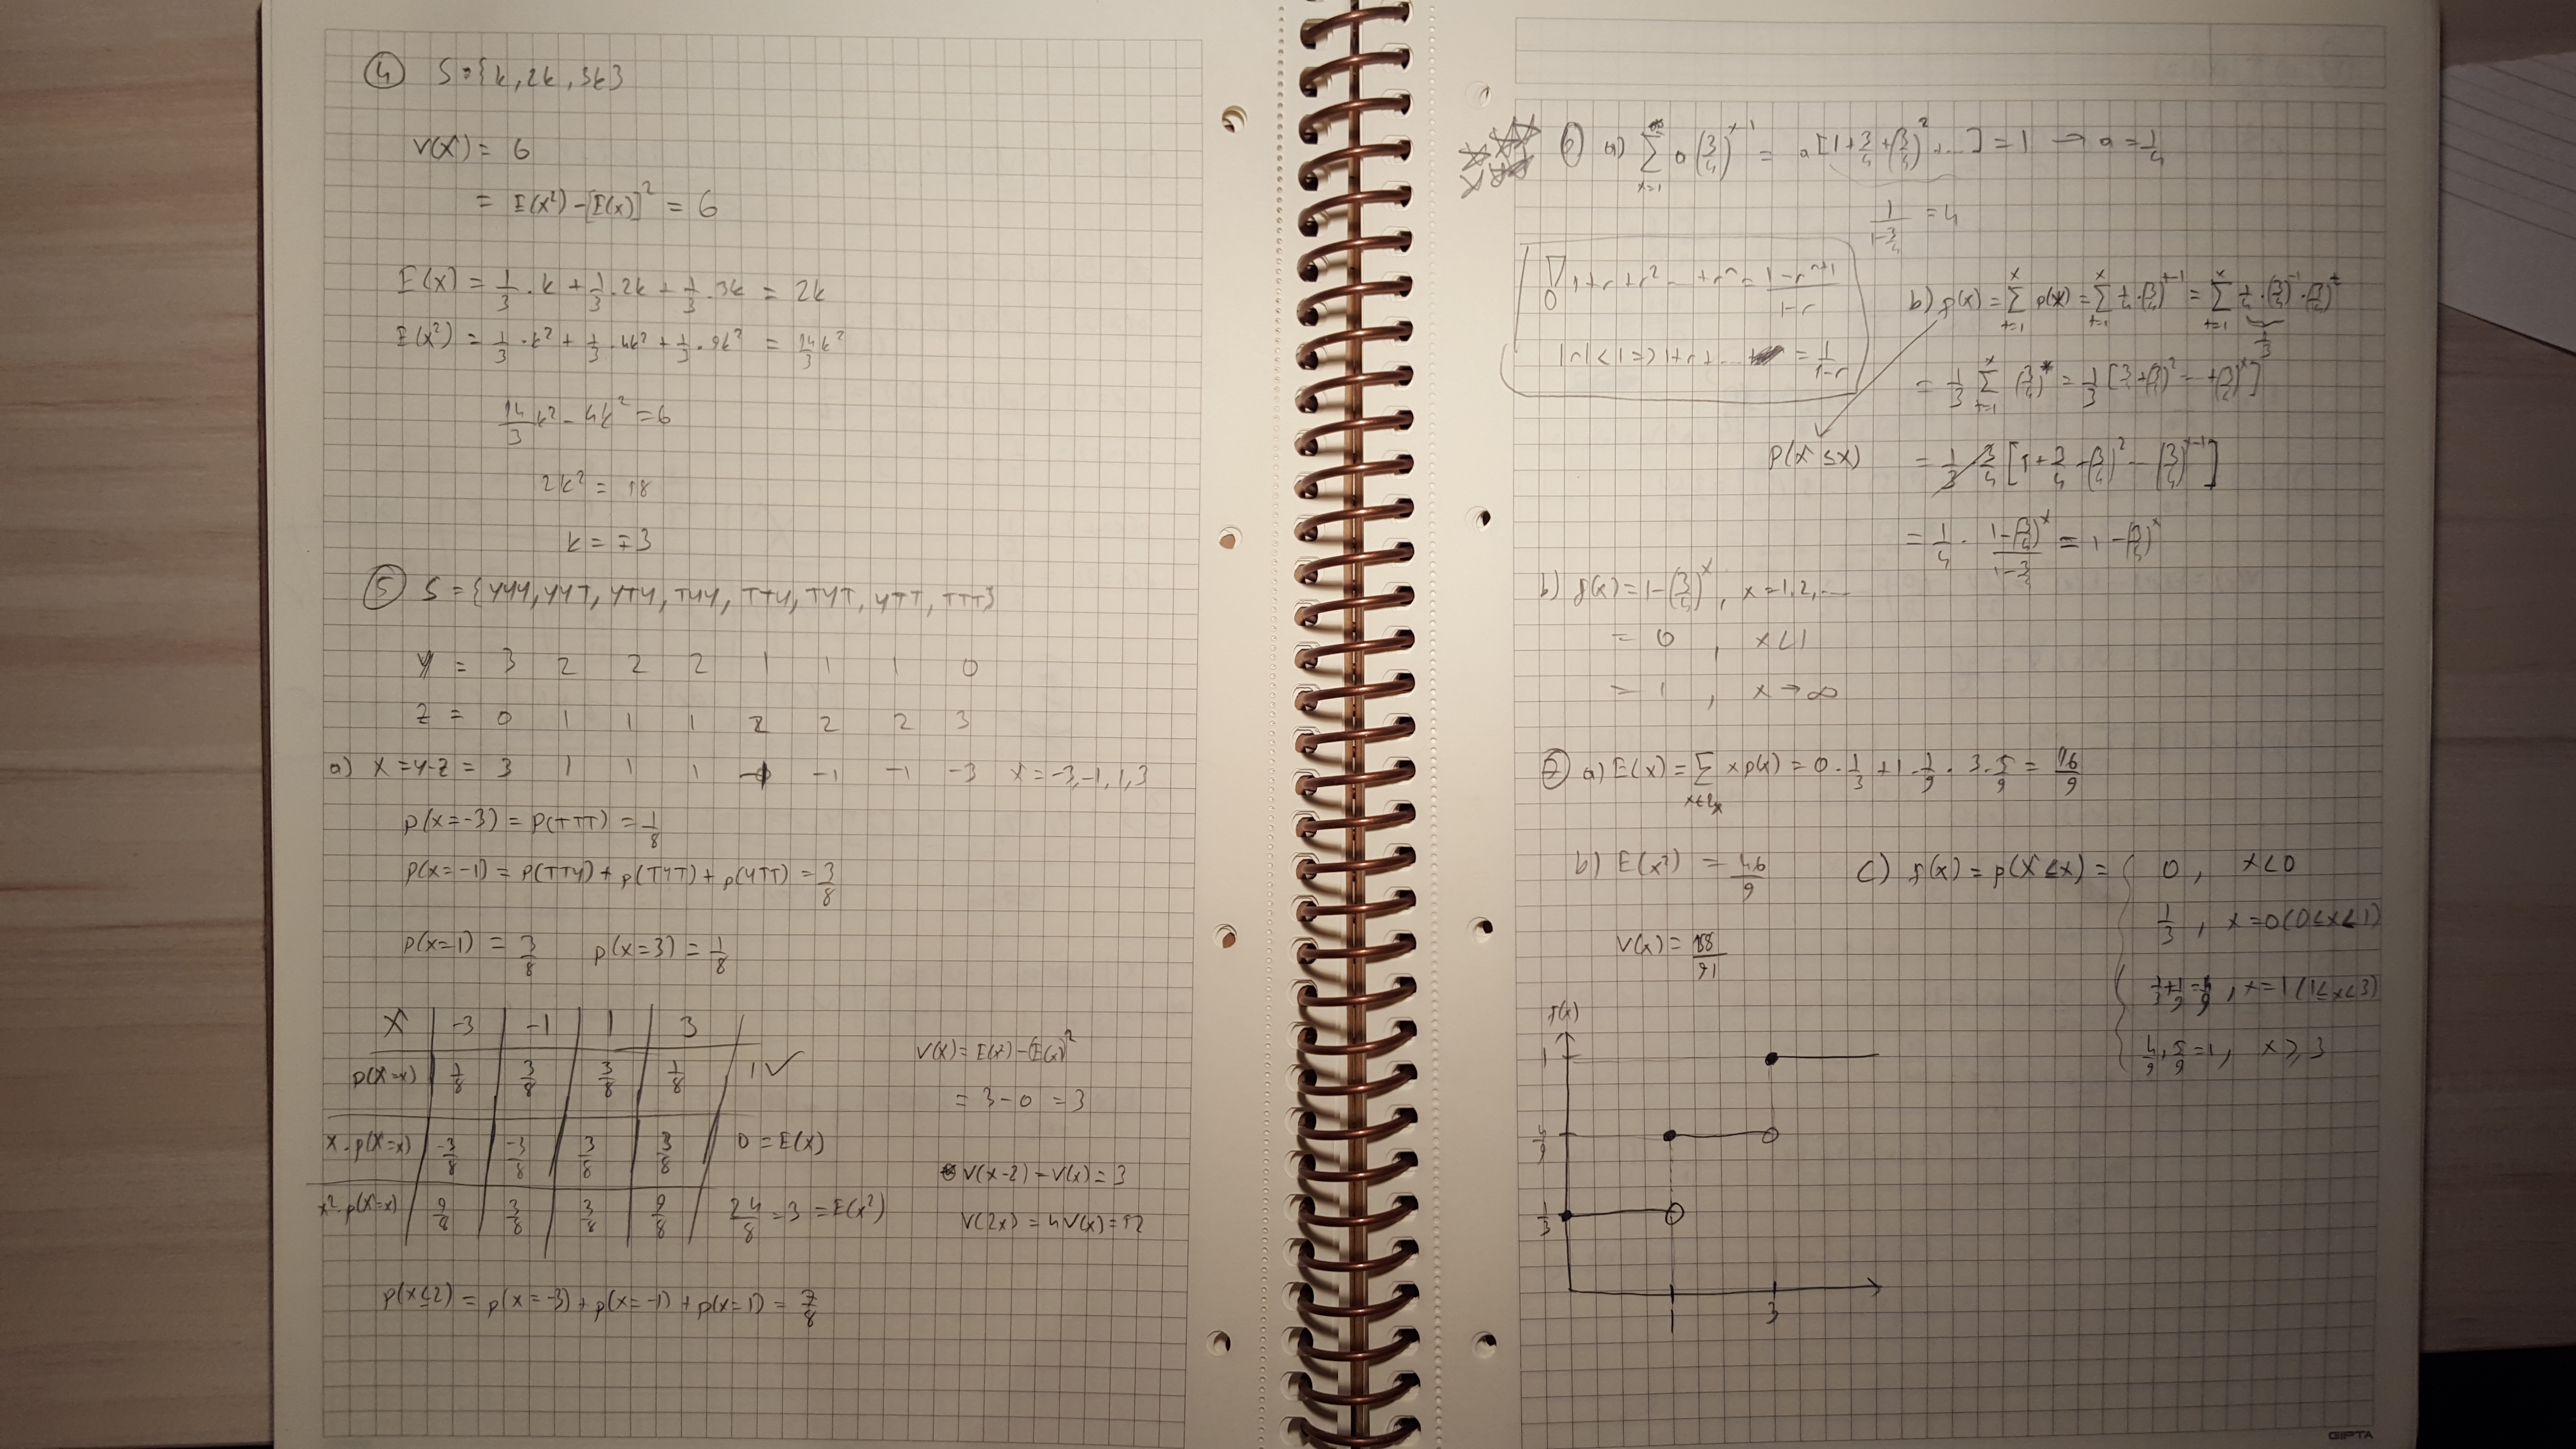 ④ S = {k, 2k, 3k}
V(X) = 6
= E(X²) - [E(X)]² = 6
E(X) = 1/3 . k + 1/3 . 2k + 1/3 . 3k = 2k
E(X²) = 1/3 . k² + 1/3 . 4k² + 1/3 . 9k² = 14/3 k²
14/3 k² - 4k² = 6
2k² = 18
k = ∓3
⑤ S = {YYY, YYT, YTY, TYY, TTY, TYT, YTT, TTT}
Y = 3 2 2 2 1 1 1 0
Z = 0 1 1 1 2 2 2 3
a) X = Y-Z = 3 1 1 1 -1 -1 -1 -3 X = -3, -1, 1, 3
P(X=-3) = P(TTT) = 1/8
P(X=-1) = P(TTY) + P(TYT) + P(YTT) = 3/8
P(X=1) = 3/8 P(X=3) = 1/8
X -3 -1 1 3
P(X=x) 1/8 3/8 3/8 1/8 1 ✓
x.P(X=x) -3/8 -3/8 3/8 3/8 0 = E(X)
x².P(X=x) 9/8 3/8 3/8 9/8 24/8 = 3 = E(X²)
V(X) = E(X²) - (E(X))²
= 3 - 0 = 3
V(X-2) = V(X) = 3
V(2X) = 4V(X) = 12
P(X≤2) = P(X=-3) + P(X=-1) + P(X=1) = 7/8
⑥ a) ∑_{x=1}^{∞} a(3/4)^{x-1} = a[1 + 3/4 + (3/4)² + ...] = 1 → a = 1/4
1/(1-3/4) = 4
! 1 + r + r² ... + rⁿ = (1-r^{n+1})/(1-r)
|r| < 1 => 1 + r + ... = 1/(1-r)
b) F(x) = ∑_{t=1}^{x} P(X) = ∑_{t=1}^{x} 1/4 . (3/4)^{t-1} = ∑_{t=1}^{x} 1/4 . (3/4)^{-1} . (3/4)^{t}
1/3
= 1/3 ∑_{t=1}^{x} (3/4)^{t} = 1/3 [3/4 + (3/4)² ... + (3/4)^{x}]
P(X ≤ x) = 1/3 . 3/4 [1 + 3/4 + (3/4)² ... (3/4)^{x-1}]
= 1/4 . (1-(3/4)^{x})/(1-3/4) = 1 - (3/4)^{x}
b) F(x) = 1 - (3/4)^{x}, x = 1, 2, ...
= 0 , x < 1
= 1 , x → ∞
⑦ a) E(X) = ∑ x P(x) = 0 . 1/3 + 1 . 1/9 . 3 . 5/9 = 16/9
b) E(X²) = 46/9
V(X) = 158/91
c) F(x) = P(X ≤ x) = { 0 , x < 0
1/3 , x = 0 (0 ≤ x < 1)
1/3 + 1/9 = 4/9 , x = 1 (1 ≤ x < 3)
4/9 + 5/9 = 1 , x ≥ 3
F(x)
1
4/9
1/3
1 3
GIPTA